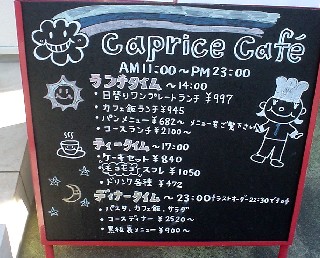 Caprice Café
AM 11:00～PM 23:00
ランチタイム ～14:00
日替りワンプレートランチ ¥997
・カフェ飯ランチ ¥945
・パンメニュー ¥682～ メニューをご覧下さい
・コースランチ ¥2100～
ティータイム ～17:00
・ケーキセット ¥840
・モコモコスフレ ¥1050
・ドリンク各種 ¥472
ディナータイム ～23:00 ラストオーダー22:30です
・パスタ、カフェ飯、サラダ
・コースディナー ¥2520～
・黒板裏メニュー ¥900～